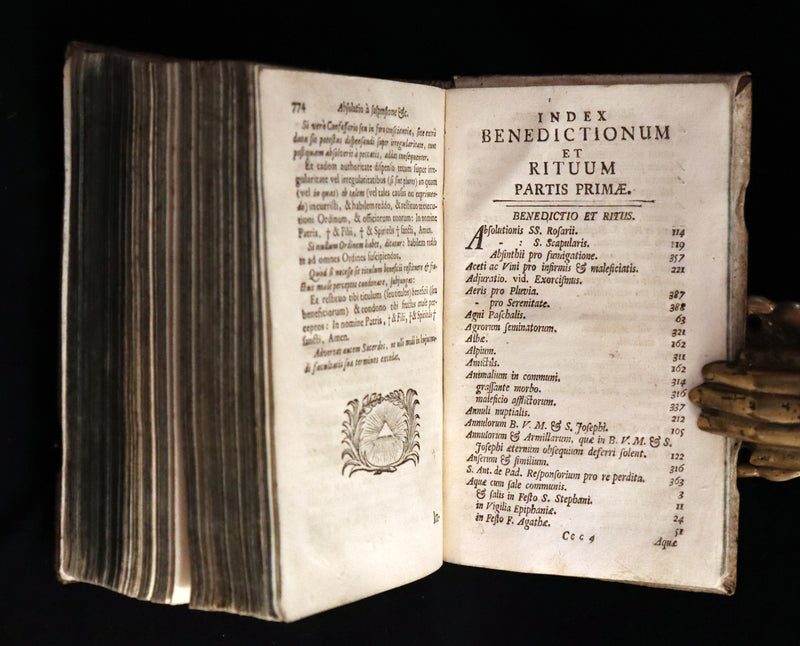 774 Absolutio à suspensione &c.
Si verò Confessario seu in foro conscientiæ, sive extra
data sit potestas dispensandi super irregularitate, tunc
postquam absolverit à peccatis, addat consequenter.
Et eadem authoritate dispenso tecum super ir-
regularitate vel irregularitatibus (si sint plures) in quam
(vel in quas) ob talem (vel tales causas eas exprimen-
do) incurristi, & habilem reddo, & restituo te executi-
oni Ordinum, & officiorum tuorum: In nomine
Patris, † & Filii, † & Spiritûs † sancti, Amen.
Si nullum Ordinem habet, dicatur: habilem reddo
te ad omnes Ordines suscipiendos.
Quod si necesse sit titulum beneficii restituere & fru-
ctus malè perceptos condonare, subjungat:
Et restituo tibi titulum (seu titulos) beneficii (seu
beneficiorum) & condono tibi fructus malè per-
ceptos: In nomine Patris, † & Filii, † & Spiritûs †
sancti, Amen.
Advertat autem Sacerdos, ne ullo modo in
di facultatis suæ terminos excedat.
In-
INDEX
BENEDICTIONUM
ET
RITUUM
PARTIS PRIMÆ.
BENEDICTIO ET RITUS.
Absolutionis SS. Rosarii. 114
- : S. Scapularis. 119
Absinthii pro fumigatione. 357
Aceti ac Vini pro infirmis & maleficiatis. 221
Adjuratio. vid. Exorcismus.
Aeris pro Pluvia. 387
- pro Serenitate. 388
Agni Paschalis. 63
Agrorum seminatorum. 321
Albæ. 162
Alpium. 311
Amictûs. 162
Animalium in communi. 314
grassante morbo. 316
maleficio afflictorum. 337
Annuli nuptialis. 212
Annulorum B. V. M. & S. Josephi. 105
Annulorum & Armillarum, quæ in B. V. M. & S.
Josephi æternum obsequium deferri solent. 122
Anserum & similium. 316
S. Ant. de Pad. Responsorium pro re perdita. 363
Aquæ cum sale communis. 3
& salis in Festo S. Stephani. 11
in Vigilia Epiphaniæ. 24
in Festo F. Agathæ. 51
Cccc 4 Aquæ